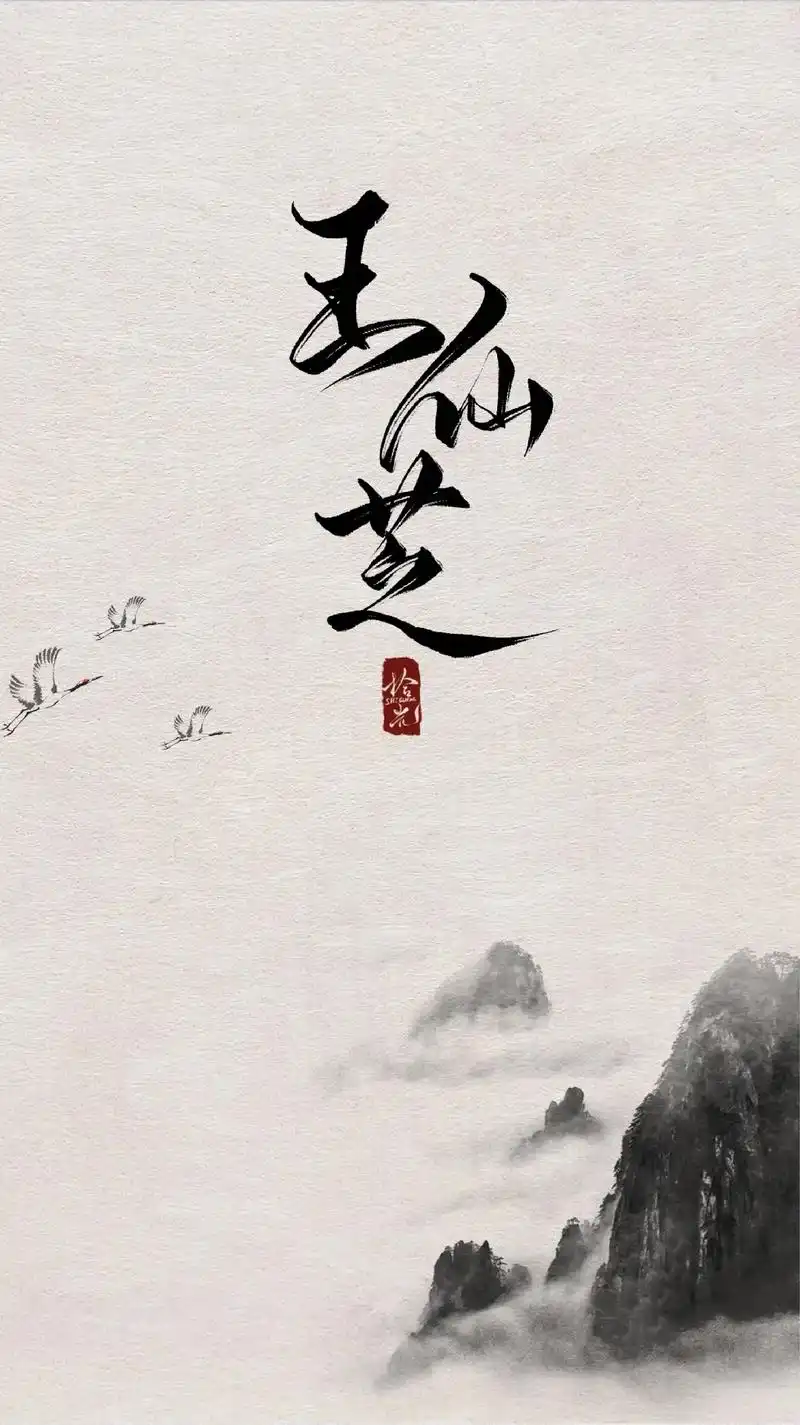 王仙芝
拾光
SHIGUANG